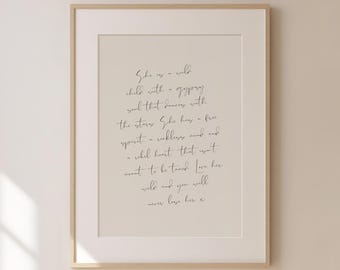 She is a wild
child with a gypsy
soul that dances with
the stars. She has a free
spirit, a reckless mind and
a rebel heart that isn't
meant to be tamed. Love her
wild and you will
never lose her x